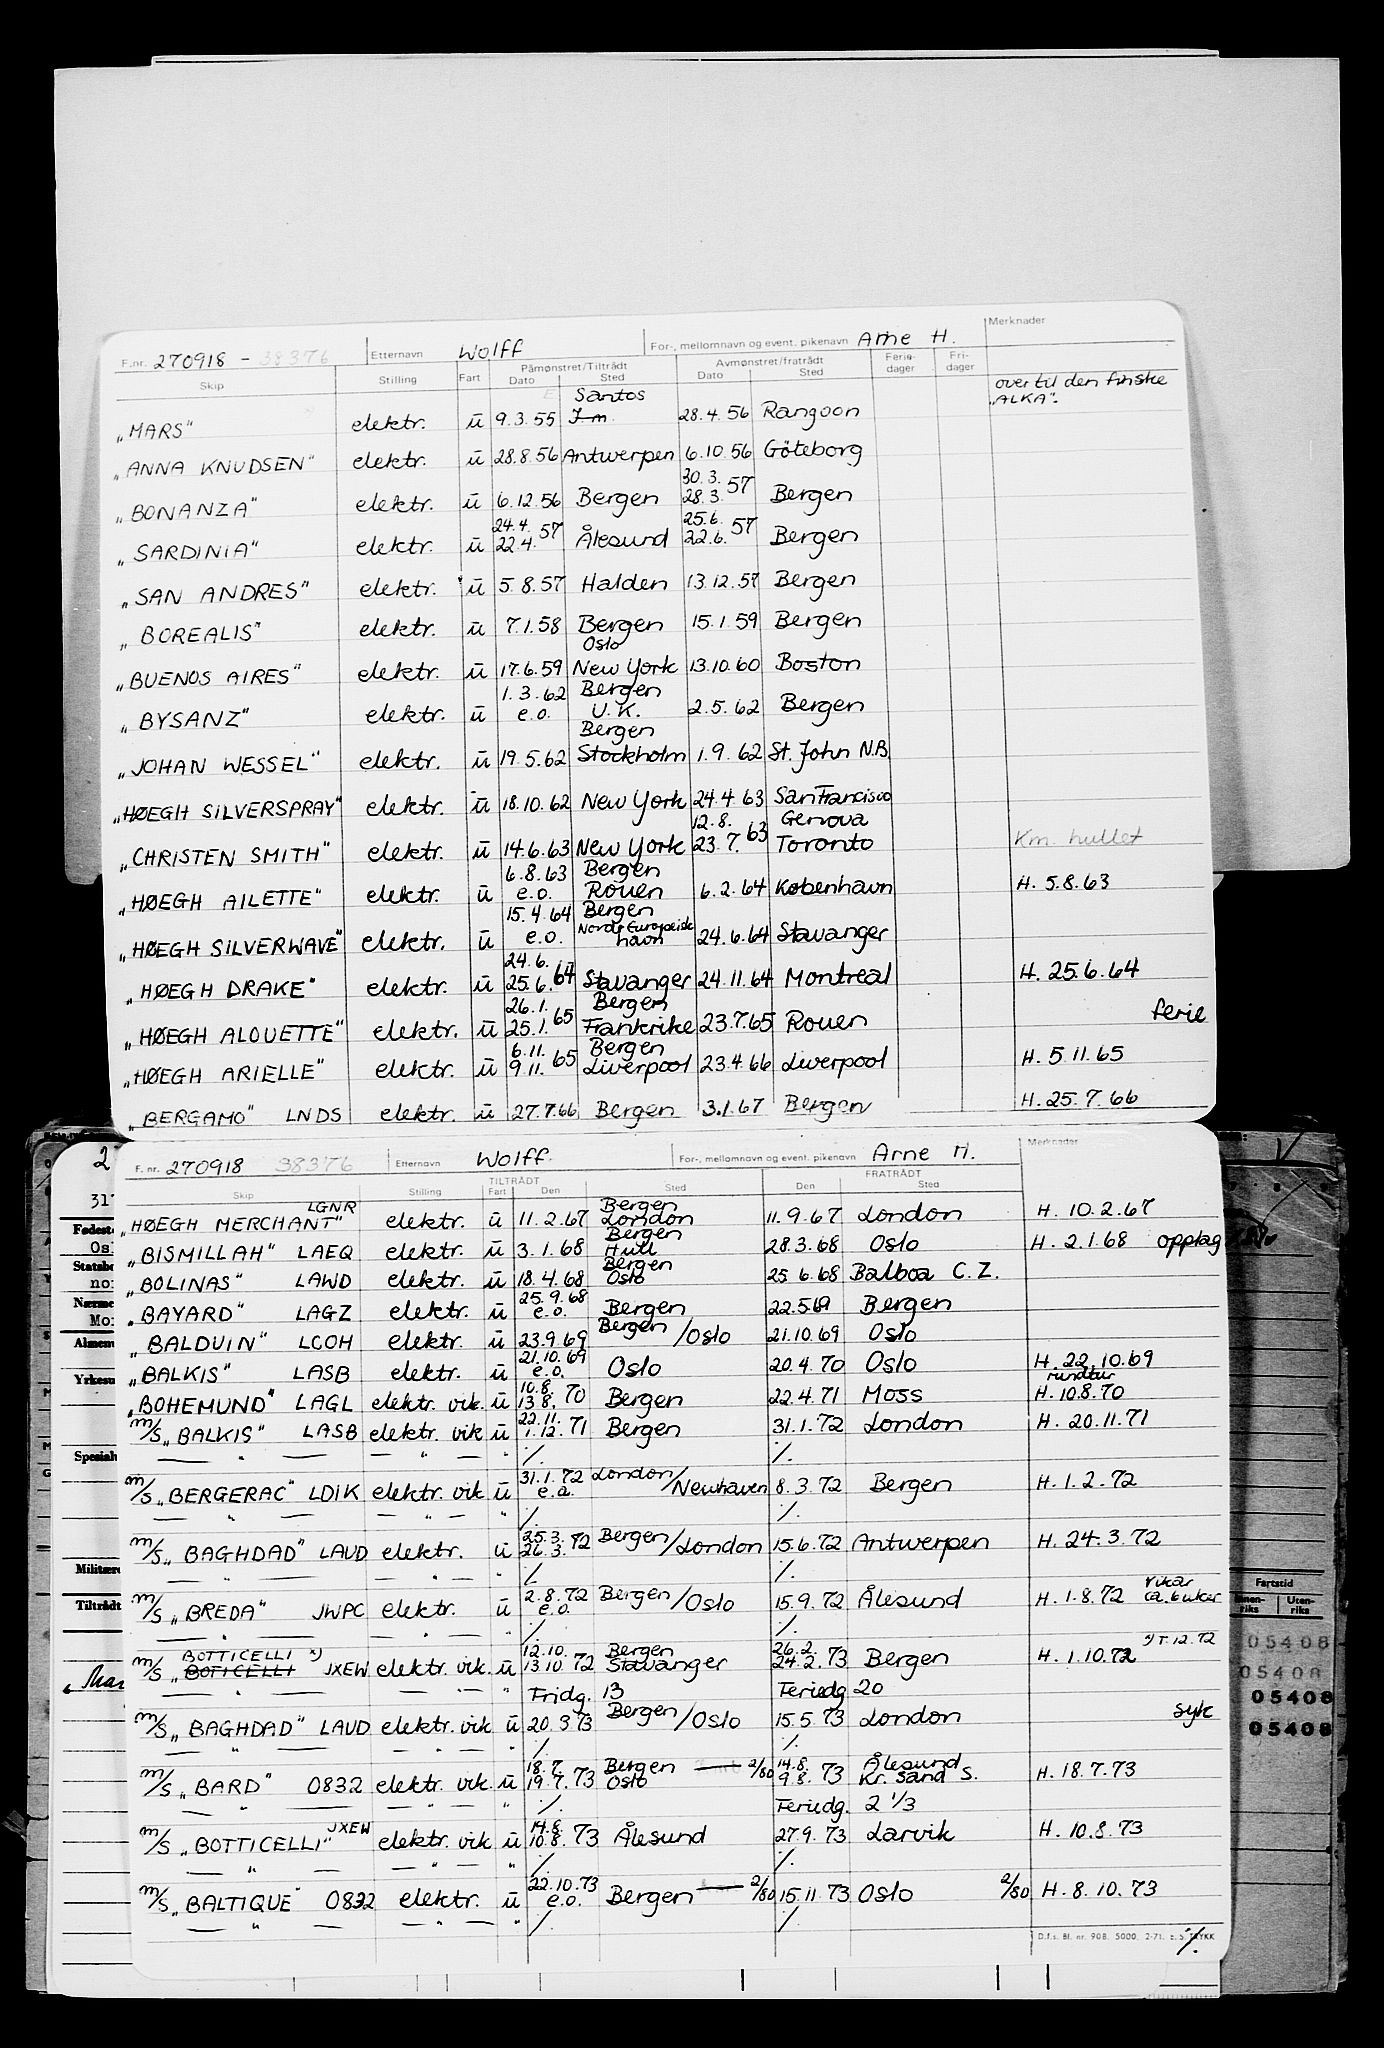 F.nr. 270918 - 38376 Etternavn Wolff For-, mellomnavn og event. pikenavn Arne H. Merknader
Skip Stilling Fart Påmønstret/Tiltrådt Dato Sted Avmønstret/fratrådt Dato Sted Ferie-dager Fri-dager
over til den finske
"ALKA".
Santos
„MARS" elektr. ü 9.3.55 28.4.56 Rangoon
„ANNA KNUDSEN" elektr. ü 28.8.56 Antwerpen 6.10.56 Göteborg
30.3.
„BONANZA" elektr. ü 6.12.56 Bergen 28.3. 57 Bergen
24.4. 25.6.
„SARDINIA" elektr. ü 22.4. 57 Ålesund 22.6. 57 Bergen
„SAN ANDRES" elektr. ü 5.8.57 Halden 13.12.57 Bergen
„BOREALIS" elektr. ü 7.1.58 Bergen 15.1.59 Bergen
Oslo
„BUENOS AIRES" elektr. ü 17.6.59 New York 13.10.60 Boston
1.3.62 Bergen
„BYSANZ" elektr. ü e.o. U.K. 2.5.62 Bergen
Bergen
„JOHAN WESSEL" elektr. ü 19.5.62 Stockholm 1.9.62 St. John N.B.
„HØEGH SILVERSPRAY" elektr. ü 18.10.62 New York 24.4.63 San Francisco
12.8. Genova
„CHRISTEN SMITH" elektr. ü 14.6.63 New York 23.7. 63 Toronto Km. hullet
6.8.63 Bergen
„HØEGH AILETTE" elektr. ü e.o. Rouen 6.2.64 København H. 5.8.63
15.4.64 Bergen
„HØEGH SILVERWAVE" elektr. ü e.o. Nord-Europeisk havn 24.6.64 Stavanger
24.6.
„HØEGH DRAKE" elektr. ü 25.6. 64 Stavanger 24.11.64 Montreal H. 25.6.64
26.1. Bergen
„HØEGH ALOUETTE" elektr. ü 25.1. 65 Frankrike 23.7.65 Rouen ferie
6.11. Bergen
„HØEGH ARIELLE" elektr. ü 9.11. 65 Liverpool 23.4.66 Liverpool H. 5.11.65
„BERGAMO" LNDS elektr. ü 27.7.66 Bergen 3.1.67 Bergen H. 25.7.66
F. nr. 270918 38376 Etternavn Wolff For-, mellomnavn og event. pikenavn Arne H. Merknader
Skip Stilling TILTRÅDT Fart Den Sted FRATRÅDT Den Sted
LGNR Bergen
„HØEGH MERCHANT" elektr. ü 11.2.67 London 11.9.67 London H. 10.2.67
Bergen
„BISMILLAH" LAEQ elektr. ü 3.1.68 Hull 28.3.68 Oslo H. 2.1.68 opplag
Bergen
„BOLINAS" LAWD elektr. ü 18.4.68 Oslo 25.6.68 Balboa C.Z.
25.9.68
„BAYARD" LAGZ elektr. ü e.o. Bergen 22.5.69 Bergen
„BALDUIN" LCOH elektr. ü 23.9.69 Bergen/Oslo 21.10.69 Oslo
21.10.69
„BALKIS" LASB elektr. ü e.o. Oslo 20.4.70 Oslo H. 22.10.69
10.8. rundtur
„BOHEMUND" LAGL elektr. vik. ü 13.8. 70 Bergen 22.4.71 Moss H. 10.8.70
22.11.
m/s „BALKIS" LASB elektr. vik ü 1.12. 71 Bergen 31.1.72 London H. 20.11.71
— " — — " — " ./. ./.
31.1.72
m/s „BERGERAC" LDIK elektr. vik ü e.a. London/Newhaven 8.3.72 Bergen H. 1.2.72
— " — — " — " ./. ./.
25.3.
m/s „BAGHDAD" LAUD elektr. ü 26.3. 72 Bergen/London 15.6.72 Antwerpen H. 24.3.72
— " — — " — " ./. ./.
2.8.72 vikar
m/s „BREDA" JWPC elektr. ü e.o. Bergen/Oslo 15.9.72 Ålesund H. 1.8.72 ca. 6 uker
— " — — " — " ./. ./.
BOTTICELLI x) 12.10. Bergen 26.2. x) T.12.72
m/s „BOTICELLI JXEW elektr. vik. ü 13.10 72 Stavanger 24.2. 73 Bergen H. 1.10.72
— " — — " — " Fridg. 13 Feriedg 20
m/s „BAGHDAD" LAUD elektr. vik ü 20.3.73 Bergen/Oslo 15.5.73 London syk
— " — — " — " ./. ./.
18.7. Bergen 14.8. Ålesund
m/s „BARD" 0832 elektr. vik. ü 19.7. 73 Oslo 2/80 9.8. 73 Kr. sand S. H. 18.7.73
— " — — " — " ./. Feriedg. 2 1/3
JXEW 14.8.
m/s „BOTTICELLI" elektr. vik ü 10.8. 73 Ålesund 27.9.73 Larvik H. 10.8.73
— " — — " — " ./. ./.
22.10.73
m/s „BALTIQUE" 0832 elektr. ü e.o. Bergen 2/80 15.11.73 Oslo 2/80 H. 8.10.73
— " — — " — " ./. ./.
D.f.s. Bl. nr. 908. 5000. 2-71.
./.
2
317
Fødeste
Os
Statsbo
no
Nærme
Mo
Almen
Yrkesu
Spesialu
Militære
Tiltrådt
Fartstid
Innen-riks Uten-riks
05408
05408
05408
05408